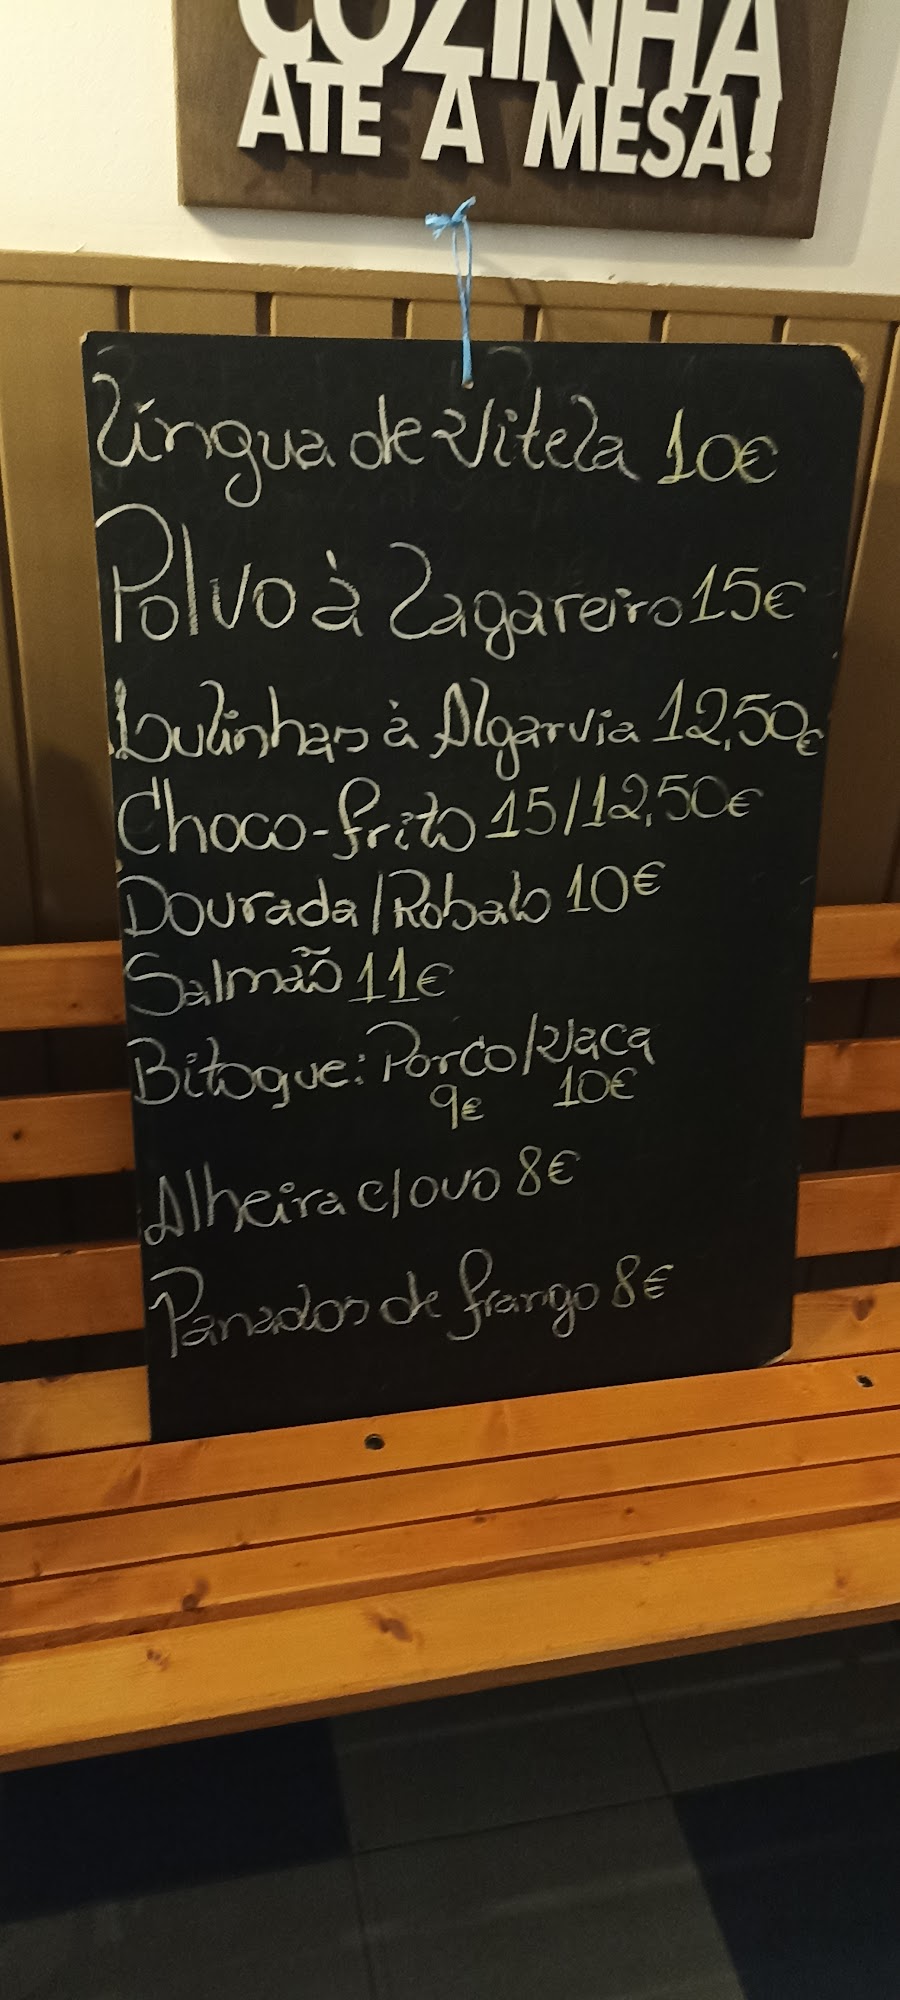 COZINHA
ATÉ A MESA!
Língua de Vitela 10€
Polvo à Lagareiro 15€
Lulinhas à Algarvia 12,50€
Choco-frito 15/12,50€
Dourada/Robalo 10€
Salmão 11€
Bitoque: Porco/Vaca
9€ 10€
Alheira c/ovo 8€
Panados de frango 8€